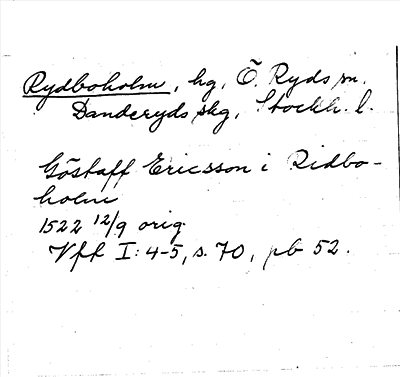 Rydboholm, hg, Ö. Ryds sn.
Danderyds skg, Stockh. l.
Göstaff Ericsson i Ridbo-
holm
1522 12/9 orig.
Vfh I: 4-5, s. 70, pb 52.